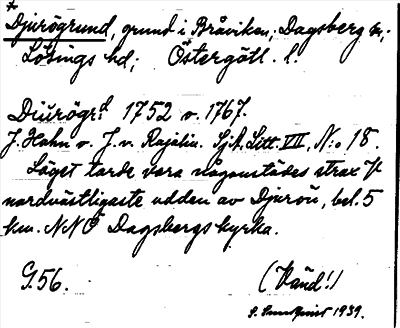 *
Djurögrund, grund i Bråviken; Dagsberg sn;
Lösings hd; Östergötl. l.
Diurögr:d 1752 o. 1767.
J. Hahn o. J. v. Rajalin. SjA. Litt. VII, N:o 18.
Läget torde vara någonstädes strax V
nordvästligaste udden av Djurön, bel. 5
km. NNO Dagsbergs kyrka.
G. 56. (Vänd!)
1939.